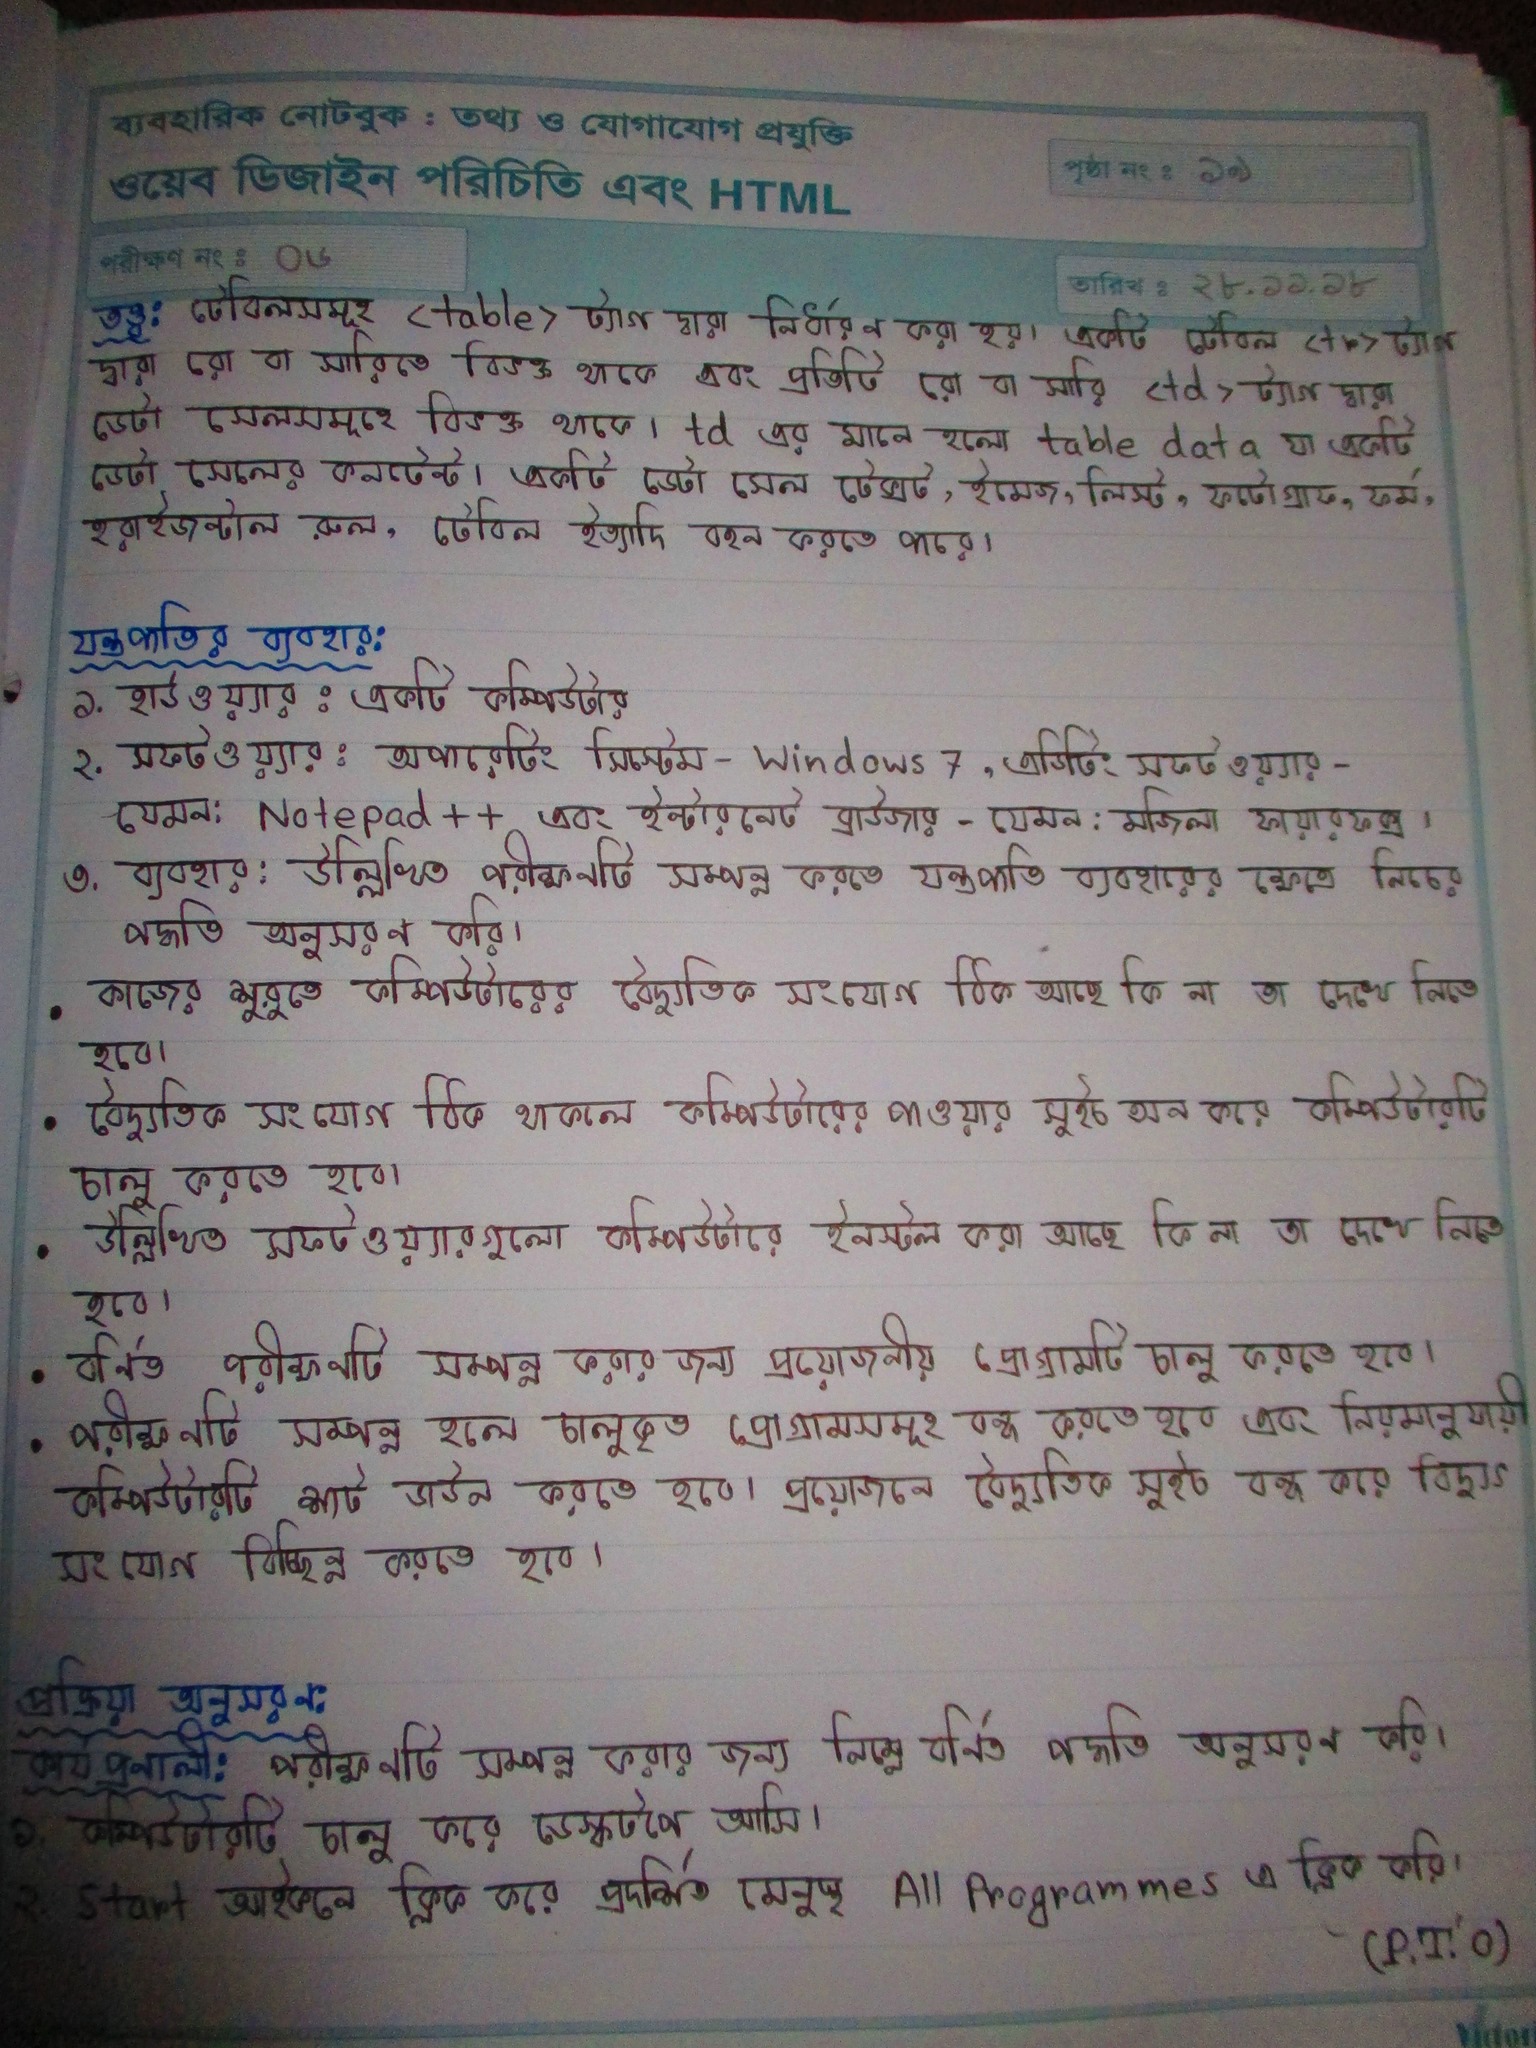 ব্যবহারিক নোটবুক : তথ্য ও যোগাযোগ প্রযুক্তি
ওয়েব ডিজাইন পরিচিতি এবং HTML
পৃষ্ঠা নং :
পরীক্ষণ নং : ০৬
তারিখ : ২৮.১১.১৮
তত্ত্ব: টেবিলসমূহ <table> ট্যাগ দ্বারা নির্ধারণ করা হয়। একটি টেবিল <tr> ট্যাগ
দ্বারা রো বা সারিতে বিভক্ত থাকে এবং প্রতিটি রো বা সারি <td> ট্যাগ দ্বারা
ডেটা সেলসমূহে বিভক্ত থাকে। td এর মানে হলো table data যা একটি
ডেটা সেলের কনটেন্ট। একটি ডেটা সেল টেক্সট, ইমেজ, লিস্ট, ফটোগ্রাফ, ফর্ম,
হরাইজন্টাল রুল, টেবিল ইত্যাদি বহন করতে পারে।
যন্ত্রপাতির ব্যবহার:
১. হার্ডওয়্যার : একটি কম্পিউটার
২. সফটওয়্যার : অপারেটিং সিস্টেম - Windows 7, এডিটিং সফটওয়্যার -
যেমন: Notepad ++ এবং ইন্টারনেট ব্রাউজার - যেমন : মজিলা ফায়ারফক্স।
৩. ব্যবহার : উল্লিখিত পরীক্ষণটি সম্পন্ন করতে যন্ত্রপাতি ব্যবহারের ক্ষেত্রে নিচের
পদ্ধতি অনুসরণ করি।
• কাজের শুরুতে কম্পিউটারের বৈদ্যুতিক সংযোগ ঠিক আছে কি না তা দেখে নিতে
হবে।
• বৈদ্যুতিক সংযোগ ঠিক থাকলে কম্পিউটারের পাওয়ার সুইচ অন করে কম্পিউটারটি
চালু করতে হবে।
• উল্লিখিত সফটওয়্যারগুলো কম্পিউটারে ইনস্টল করা আছে কি না তা দেখে নিতে
হবে।
• বর্ণিত পরীক্ষণটি সম্পন্ন করার জন্য প্রয়োজনীয় প্রোগ্রামটি চালু করতে হবে।
• পরীক্ষণটি সম্পন্ন হলে চালুকৃত প্রোগ্রামসমূহ বন্ধ করতে হবে এবং নিয়মানুযায়ী
কম্পিউটারটি শাট ডাউন করতে হবে। প্রয়োজনে বৈদ্যুতিক সুইচ বন্ধ করে বিদ্যুৎ
সংযোগ বিচ্ছিন্ন করতে হবে।
প্রক্রিয়া অনুসরণ:
কার্যপ্রণালী: পরীক্ষণটি সম্পন্ন করার জন্য নিম্নে বর্ণিত পদ্ধতি অনুসরণ করি।
১. কম্পিউটারটি চালু করে ডেস্কটপে আসি।
২. Start আইকনে ক্লিক করে প্রদর্শিত মেনুর All Programmes এ ক্লিক করি।
(P.T.O)